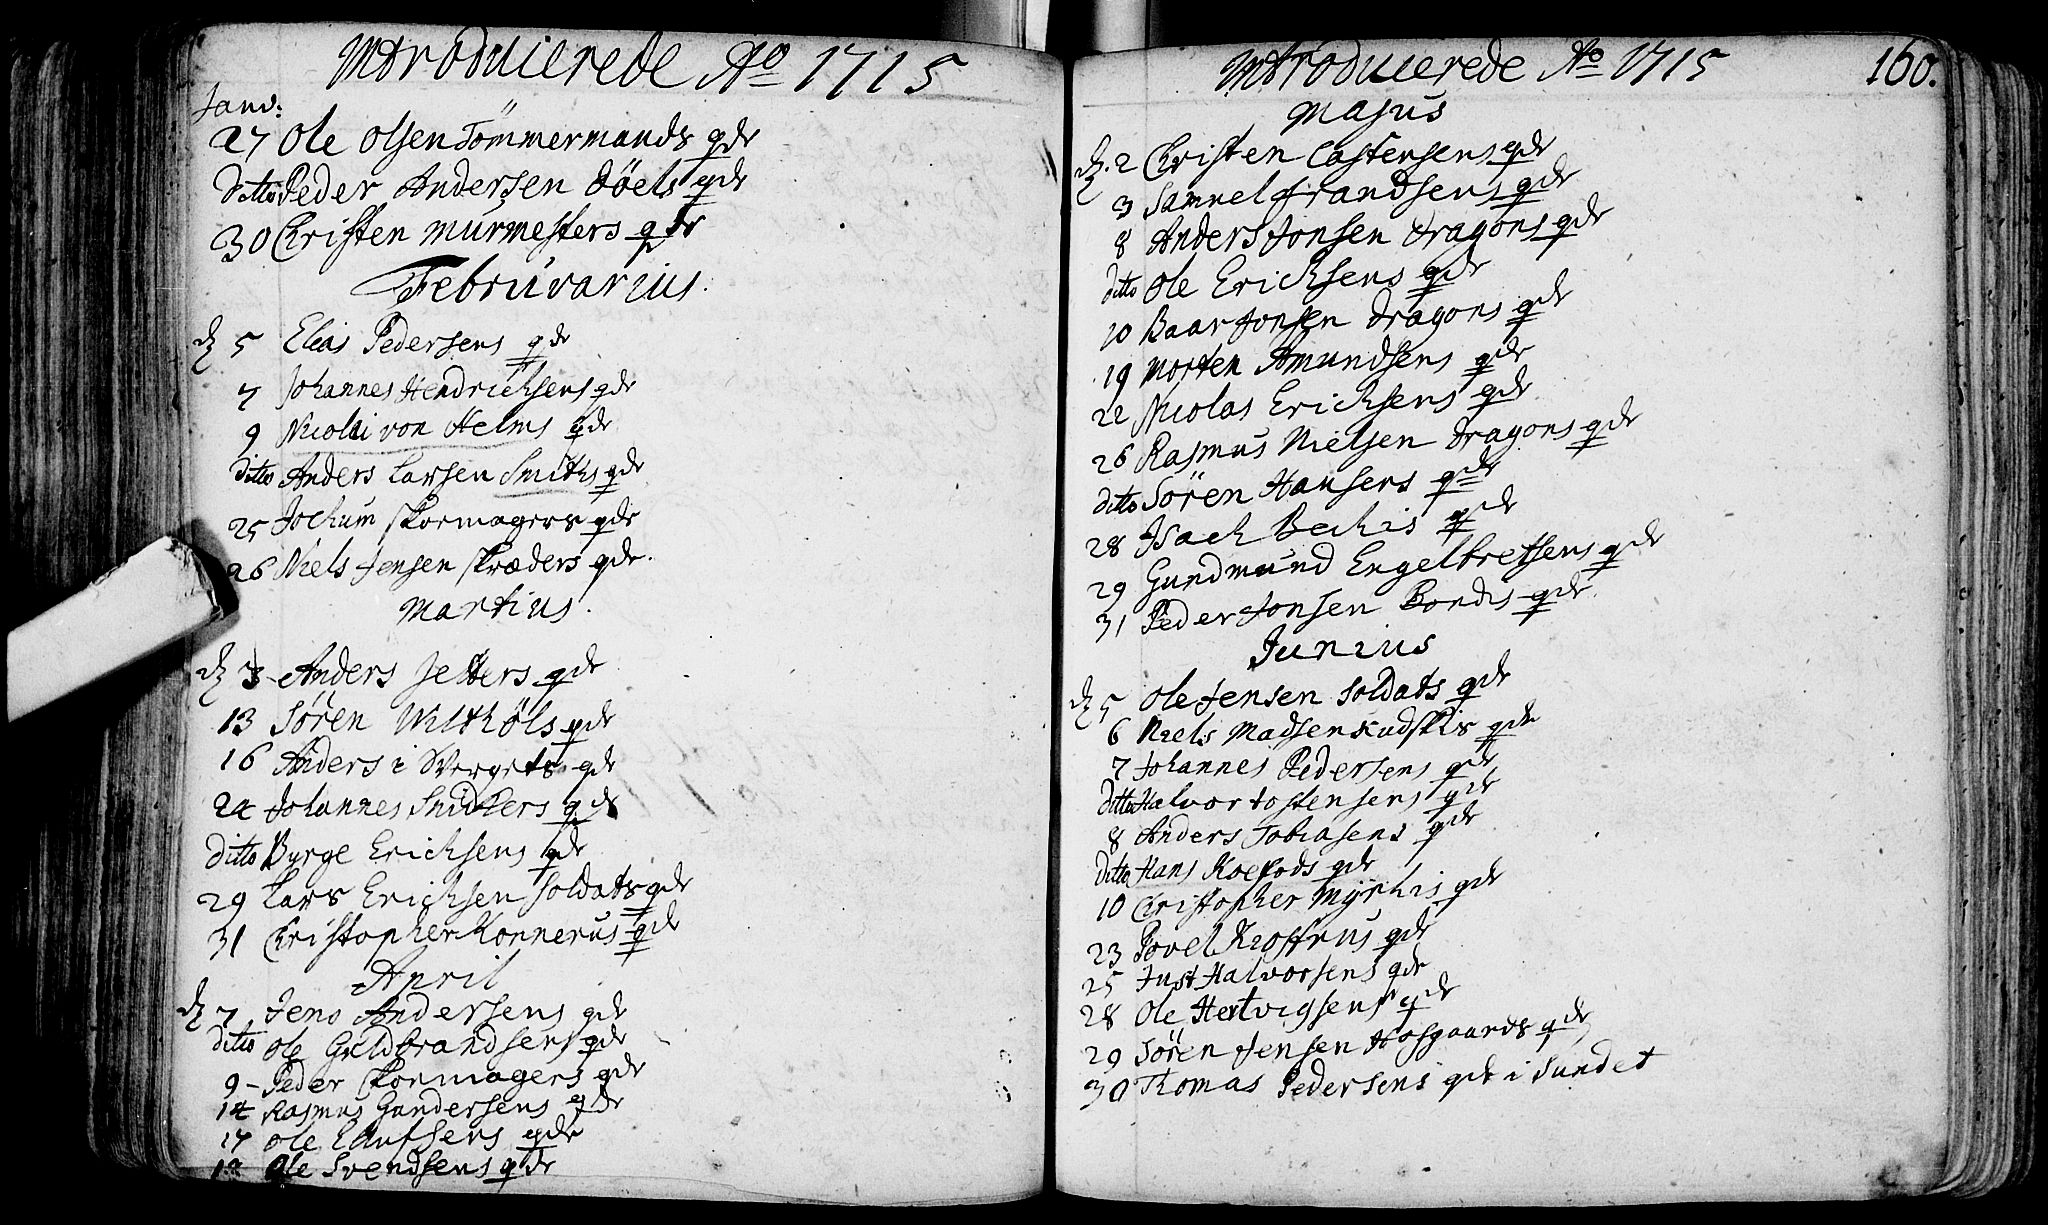 Introduicerede Ao 1715
Janv:
27 Ole Olsen Tömmermands qdr
Ditto Peder Andersen Döels qdr
30 Christen Murmesters qdr
Februvarius.
d 5 Elias Pedersens qdr
7 Johannes Hendrichsens qdr
9 Nicolai von Helms qdr
ditto Anders Larsen Smiths qdr
25 Jochum Skoemagers qdr
26 Niels Jensen Skræders qdr.
Martius.
d 3 Anders Jetters qdr
13 Sören Wilthöls qdr
16 Anders i qdr
24 Johannes Snidkers qdr
Ditto Byrge Erichsens qdr
29 Lars Erichsen Soldats qdr
31 Christopher Konnerus qdr
April
d 7 Jens Andersens qdr
ditto Ole Guldbrandsens qdr
9 - Peder Skoemagers qdr
14 Rasmus Gundersens qdr
17 Ole Laufsens qdr
18 Ole Svendsens qdr
Introduicerede Ao 1715 160.
Majus
d. 2 Christen Castensens qdr
3 Samuel Frandsens qdr
8 Anders Jonsen Dragons qdr
ditto Ole Erichsens qdr
10 Baar Jonsen Dragons qdr
19 Morten Amundsens qdr
22 Nicolas Erichsens qdr
26 Rasmus Nielsen Dragons qdr
ditto Sören Hansens qdr
28 Isach Bechis qdr
29 Gundmund Engelbretsens qdr
31 Peder Jonsen Bondes qdr
Junius
d 5 Ole Jensen Soldats qdr
6 Niels Madsen Kudskis qdr
7 Johannes Pedersens qdr
ditto Halvor Jostensens qdr
8 Anders Tobiasens qdr
ditto Hans Koefods qdr
10 Christopher Myrhis qdr
23 Povel qdr
25 Just Halvorsens qdr
28 Ole Hertvigsens qdr
29 Sören Jensen Hofgaards qdr
30 Thomas Pedersens qdr i Sundet